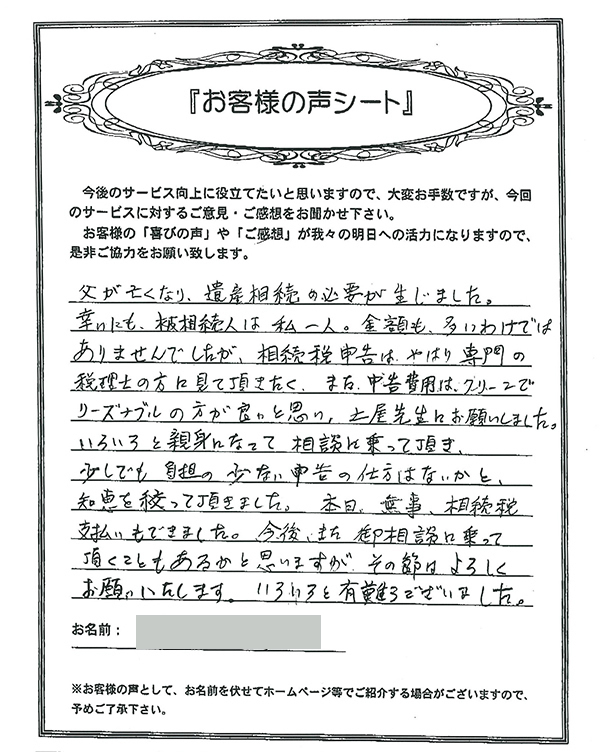 『お客様の声シート』
今後のサービス向上に役立てたいと思いますので、大変お手数ですが、今回
のサービスに対するご意見・ご感想をお聞かせ下さい。
お客様の「喜びの声」や「ご感想」が我々の明日への活力になりますので、
是非ご協力をお願い致します。
父が亡くなり、遺産相続の必要が生じました。
幸いにも、被相続人は私一人。金額も、多いわけでは
ありませんでしたが、相続税申告は、やはり専門の
税理士の方に見て頂きたく、また、申告費用は、クリーンで
リーズナブルの方が良いと思い、土屋先生にお願いしました。
いろいろと親身になって相談に乗って頂き、
少しでも負担の少ない申告の仕方はないかと、
知恵を絞って頂きました。本日、無事、相続税
支払いもできました。今後、また御相談に乗って
頂くこともあるかと思いますが、その節はよろしく
お願いいたします。いろいろと有難うございました。
お名前：
※お客様の声として、お名前を伏せてホームページ等でご紹介する場合がございますので、
予めご了承下さい。